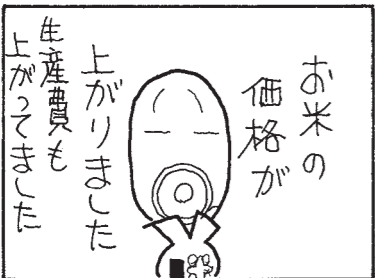 お米の
価格が
上がりました
生産費も
上がってました